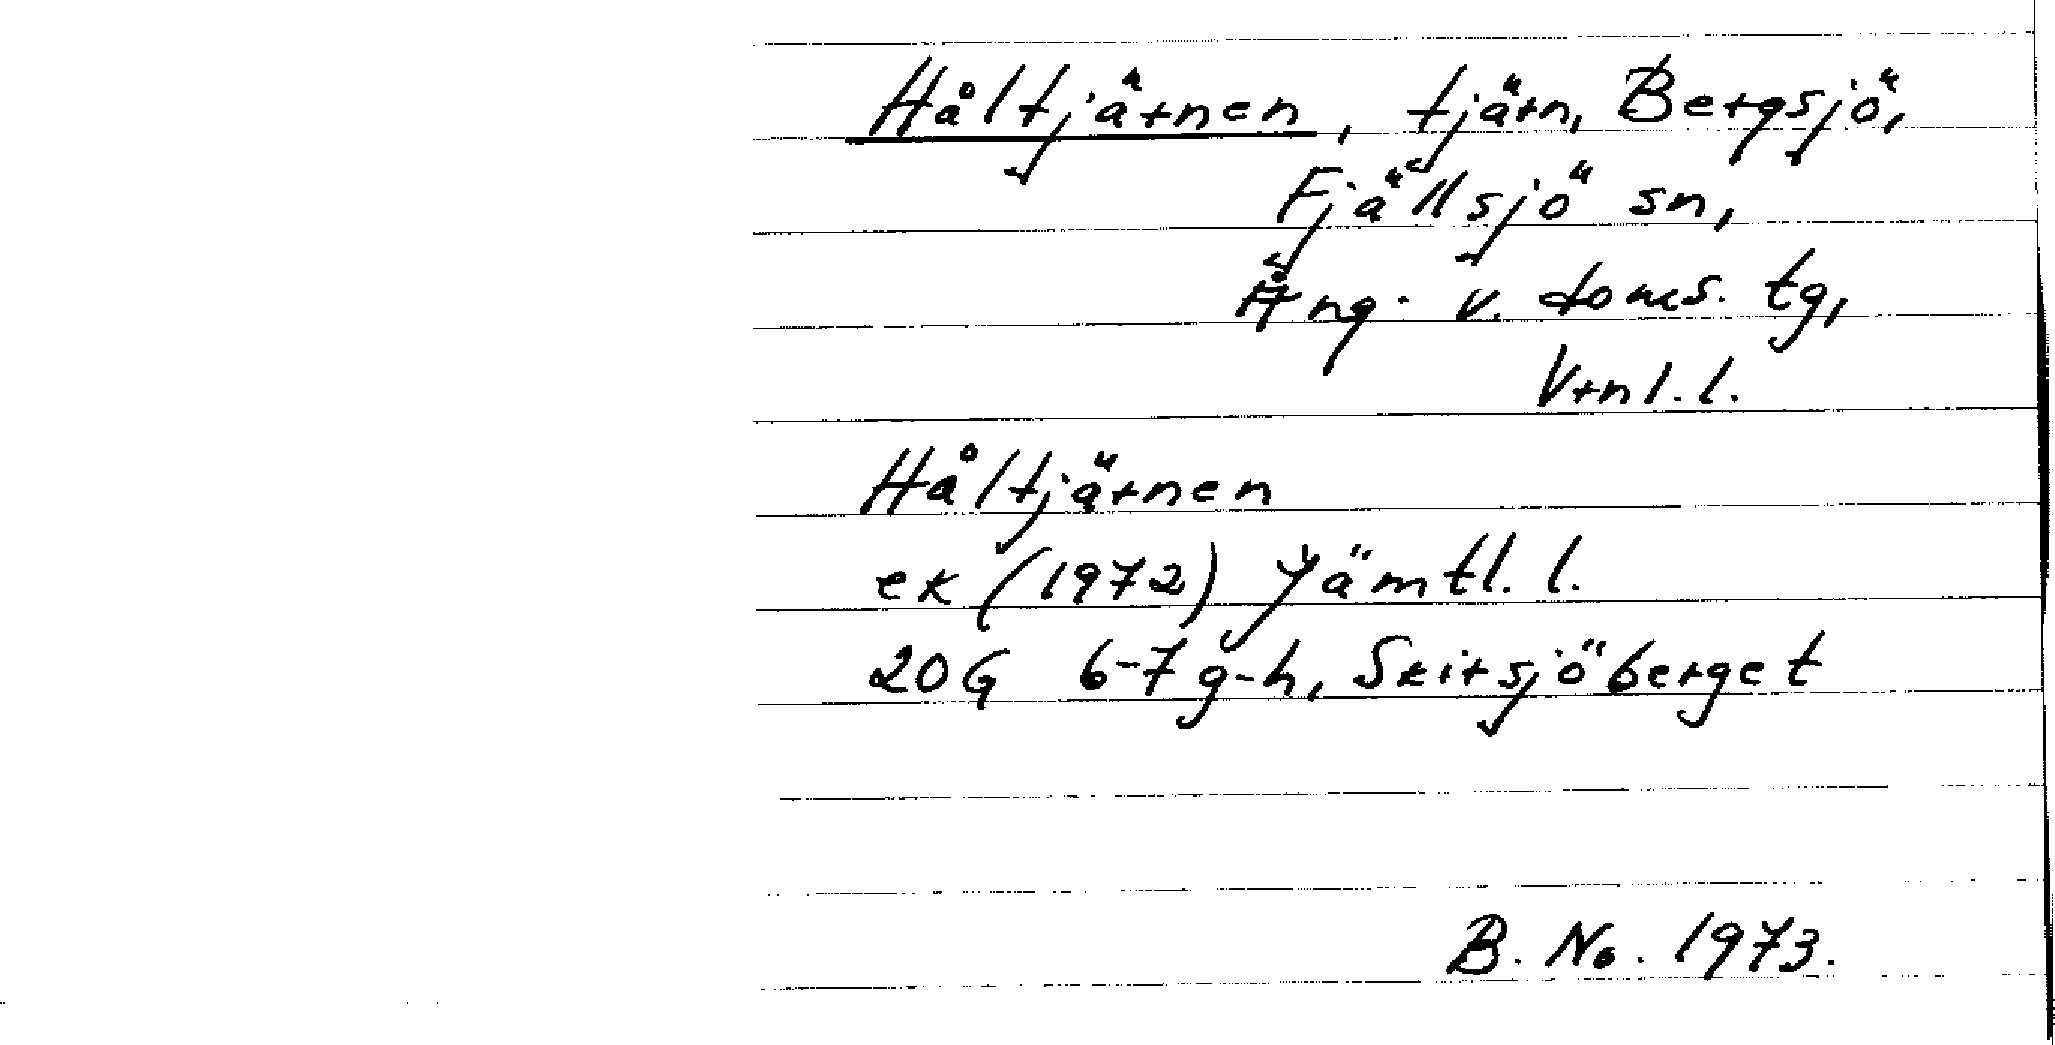 Håltjärnen, tjärn, Bergsjö,
Fjällsjö sn,
Ång. v. doms. tg,
Vrnl. l.
Håltjärnen
ek (1972) Jämtl. l.
20G 6-7 g-h, Skirsjöberget
B. No. 1973.